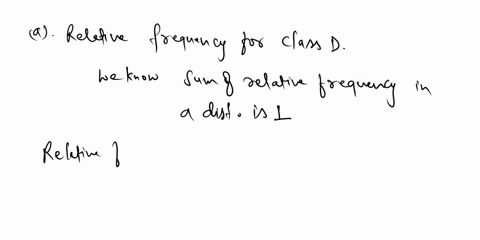 (a). Relative frequency for class D.
we know Sum of relative frequency in
a dist. is 1
Relative f